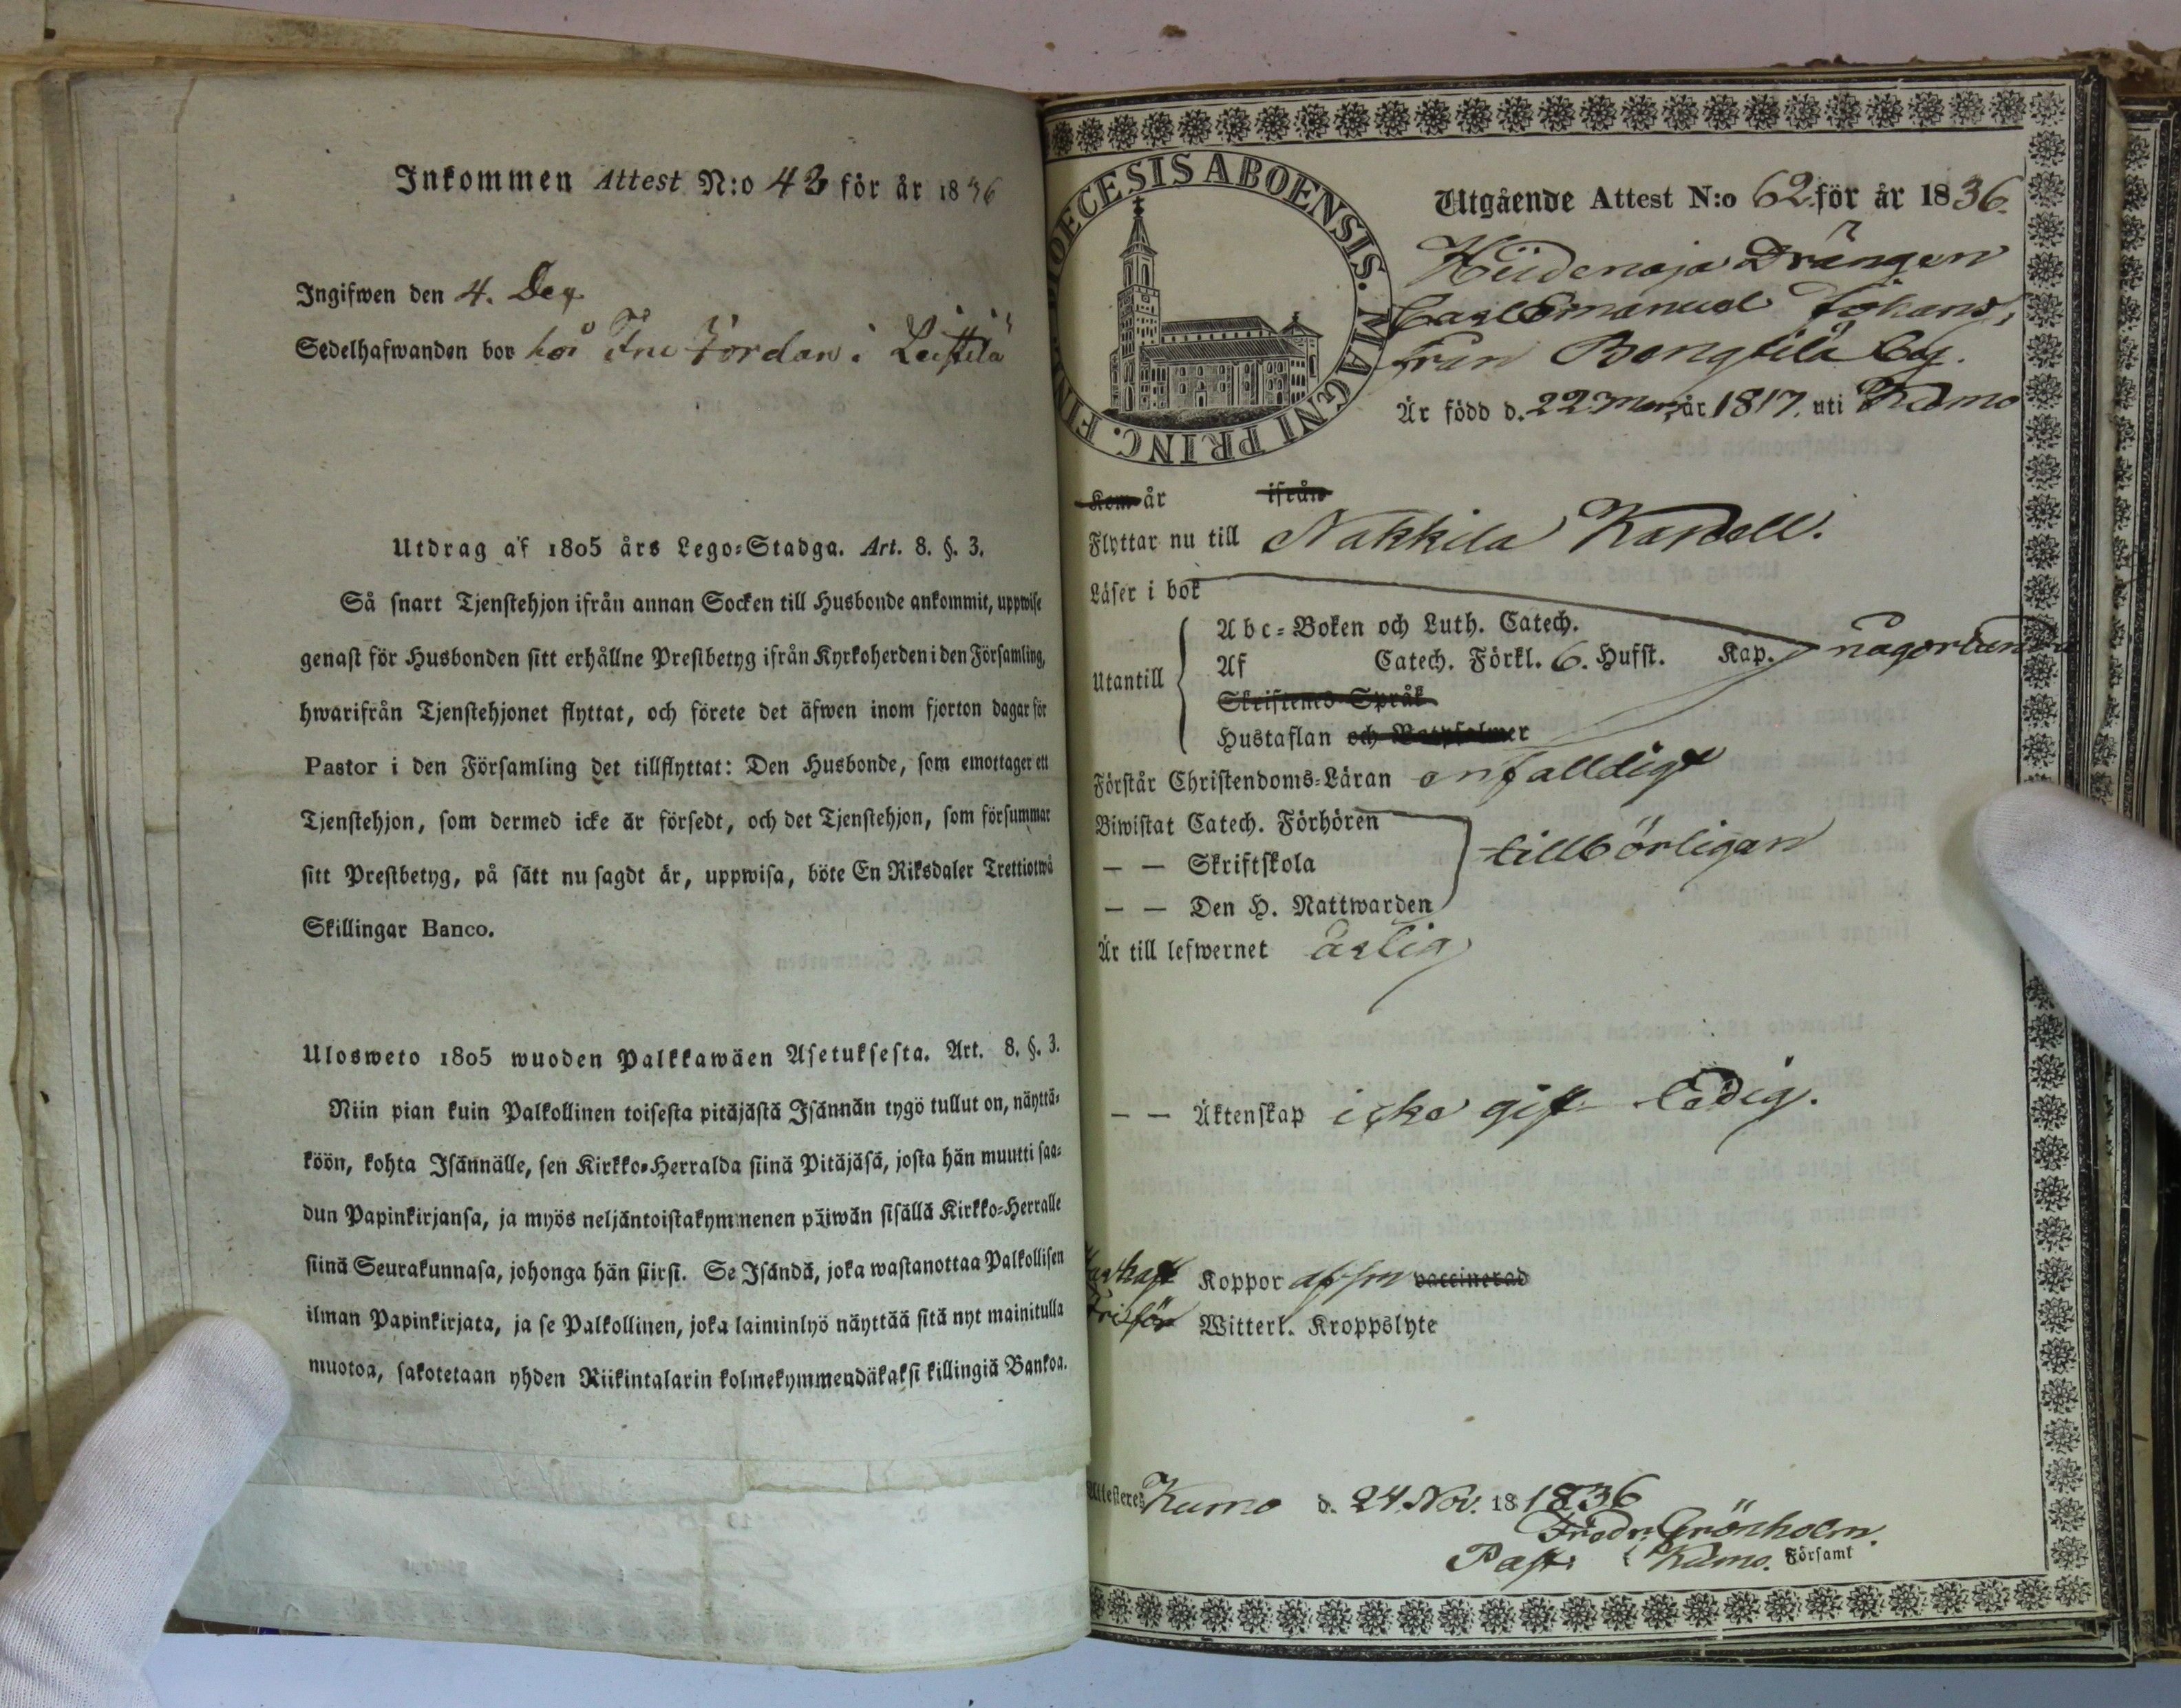 Inkommen Attest N:o 43 för år 1836
Ingifwen den 4. Dec.
Sedelhafwanden bor hos Fru Jordan i Leistilä
Utdrag af 1805 års Lego=Stadga. Art. 8. §. 3.
Så snart Tjenstehjon ifrån annan Socken till Husbonde ankommit, uppwise
genast för Husbonden sitt erhållne Prestbetyg ifrån Kyrkoherden i den Församling,
hwarifrån Tjenstehjonet flyttat, och förete det äfwen inom fjorton dagar för
Pastor i den Församling det tillflyttat: Den Husbonde, som emottager ett
Tjenstehjon, som dermed icke är försedt, och det Tjenstehjon, som försummar
sitt Prestbetyg, på sätt nu sagdt är, uppwisa, böte En Riksdaler Trettiotwå
Skillingar Banco.
Ulosweto 1805 wuoden Palkkawäen Asetuksesta. Art. 8. §. 3.
Niin pian kuin Palkollinen toisesta pitäjästä Isännän tygö tullut on, näyttä=
köön, kohta Isännälle, sen Kirkko=Herralda siinä Pitäjäsä, josta hän muutti saa=
dun Papinkirjansa, ja myös neljäntoistakymmenen päiwän sisällä Kirkko=Herralle
siinä Seurakunnasa, johonga hän siirsi. Se Isändä, joka wastanottaa Palkollisen
ilman Papinkirjata, ja se Palkollinen, joka laiminlyö näyttää sitä nyt mainitulla
muotoa, sakotetaan yhden Riikintalarin kolmekymmendäkaksi killingiä Bankoa.
DIOECESIS ABOENSIS. MAGNI PRINC. FINL.
Utgående Attest N:o 62 för år 1836.
Drängen
Carl Emanuel Johans,
från Bengtilä By.
Är född d. 22 Mars år 1817. uti Kumo
Kom år ifrån
Flyttar nu till Nakkila Kapell.
Läser i bok
Abc=Boken och Luth. Catech.
Utantill Af Catech. Förkl. 6. Hufst. Kap. någorlunda
Skriftenes Språk
Hustaflan och Botpsalmer
Förstår Christendoms=Läran enfalldigt
Biwistat Catech. Förhören
— — Skriftskola tillbörligan
— — Den H. Nattwarden
Är till lefwernet ärlig
— — Äktenskap icke gift ledig.
Koppor vaccinerad
Fri för Witterl. Kroppslyte
Attesteres Kumo d. 24 Nov. 18 1836
Fredr: Grönholm.
Past: i Kumo. Församl